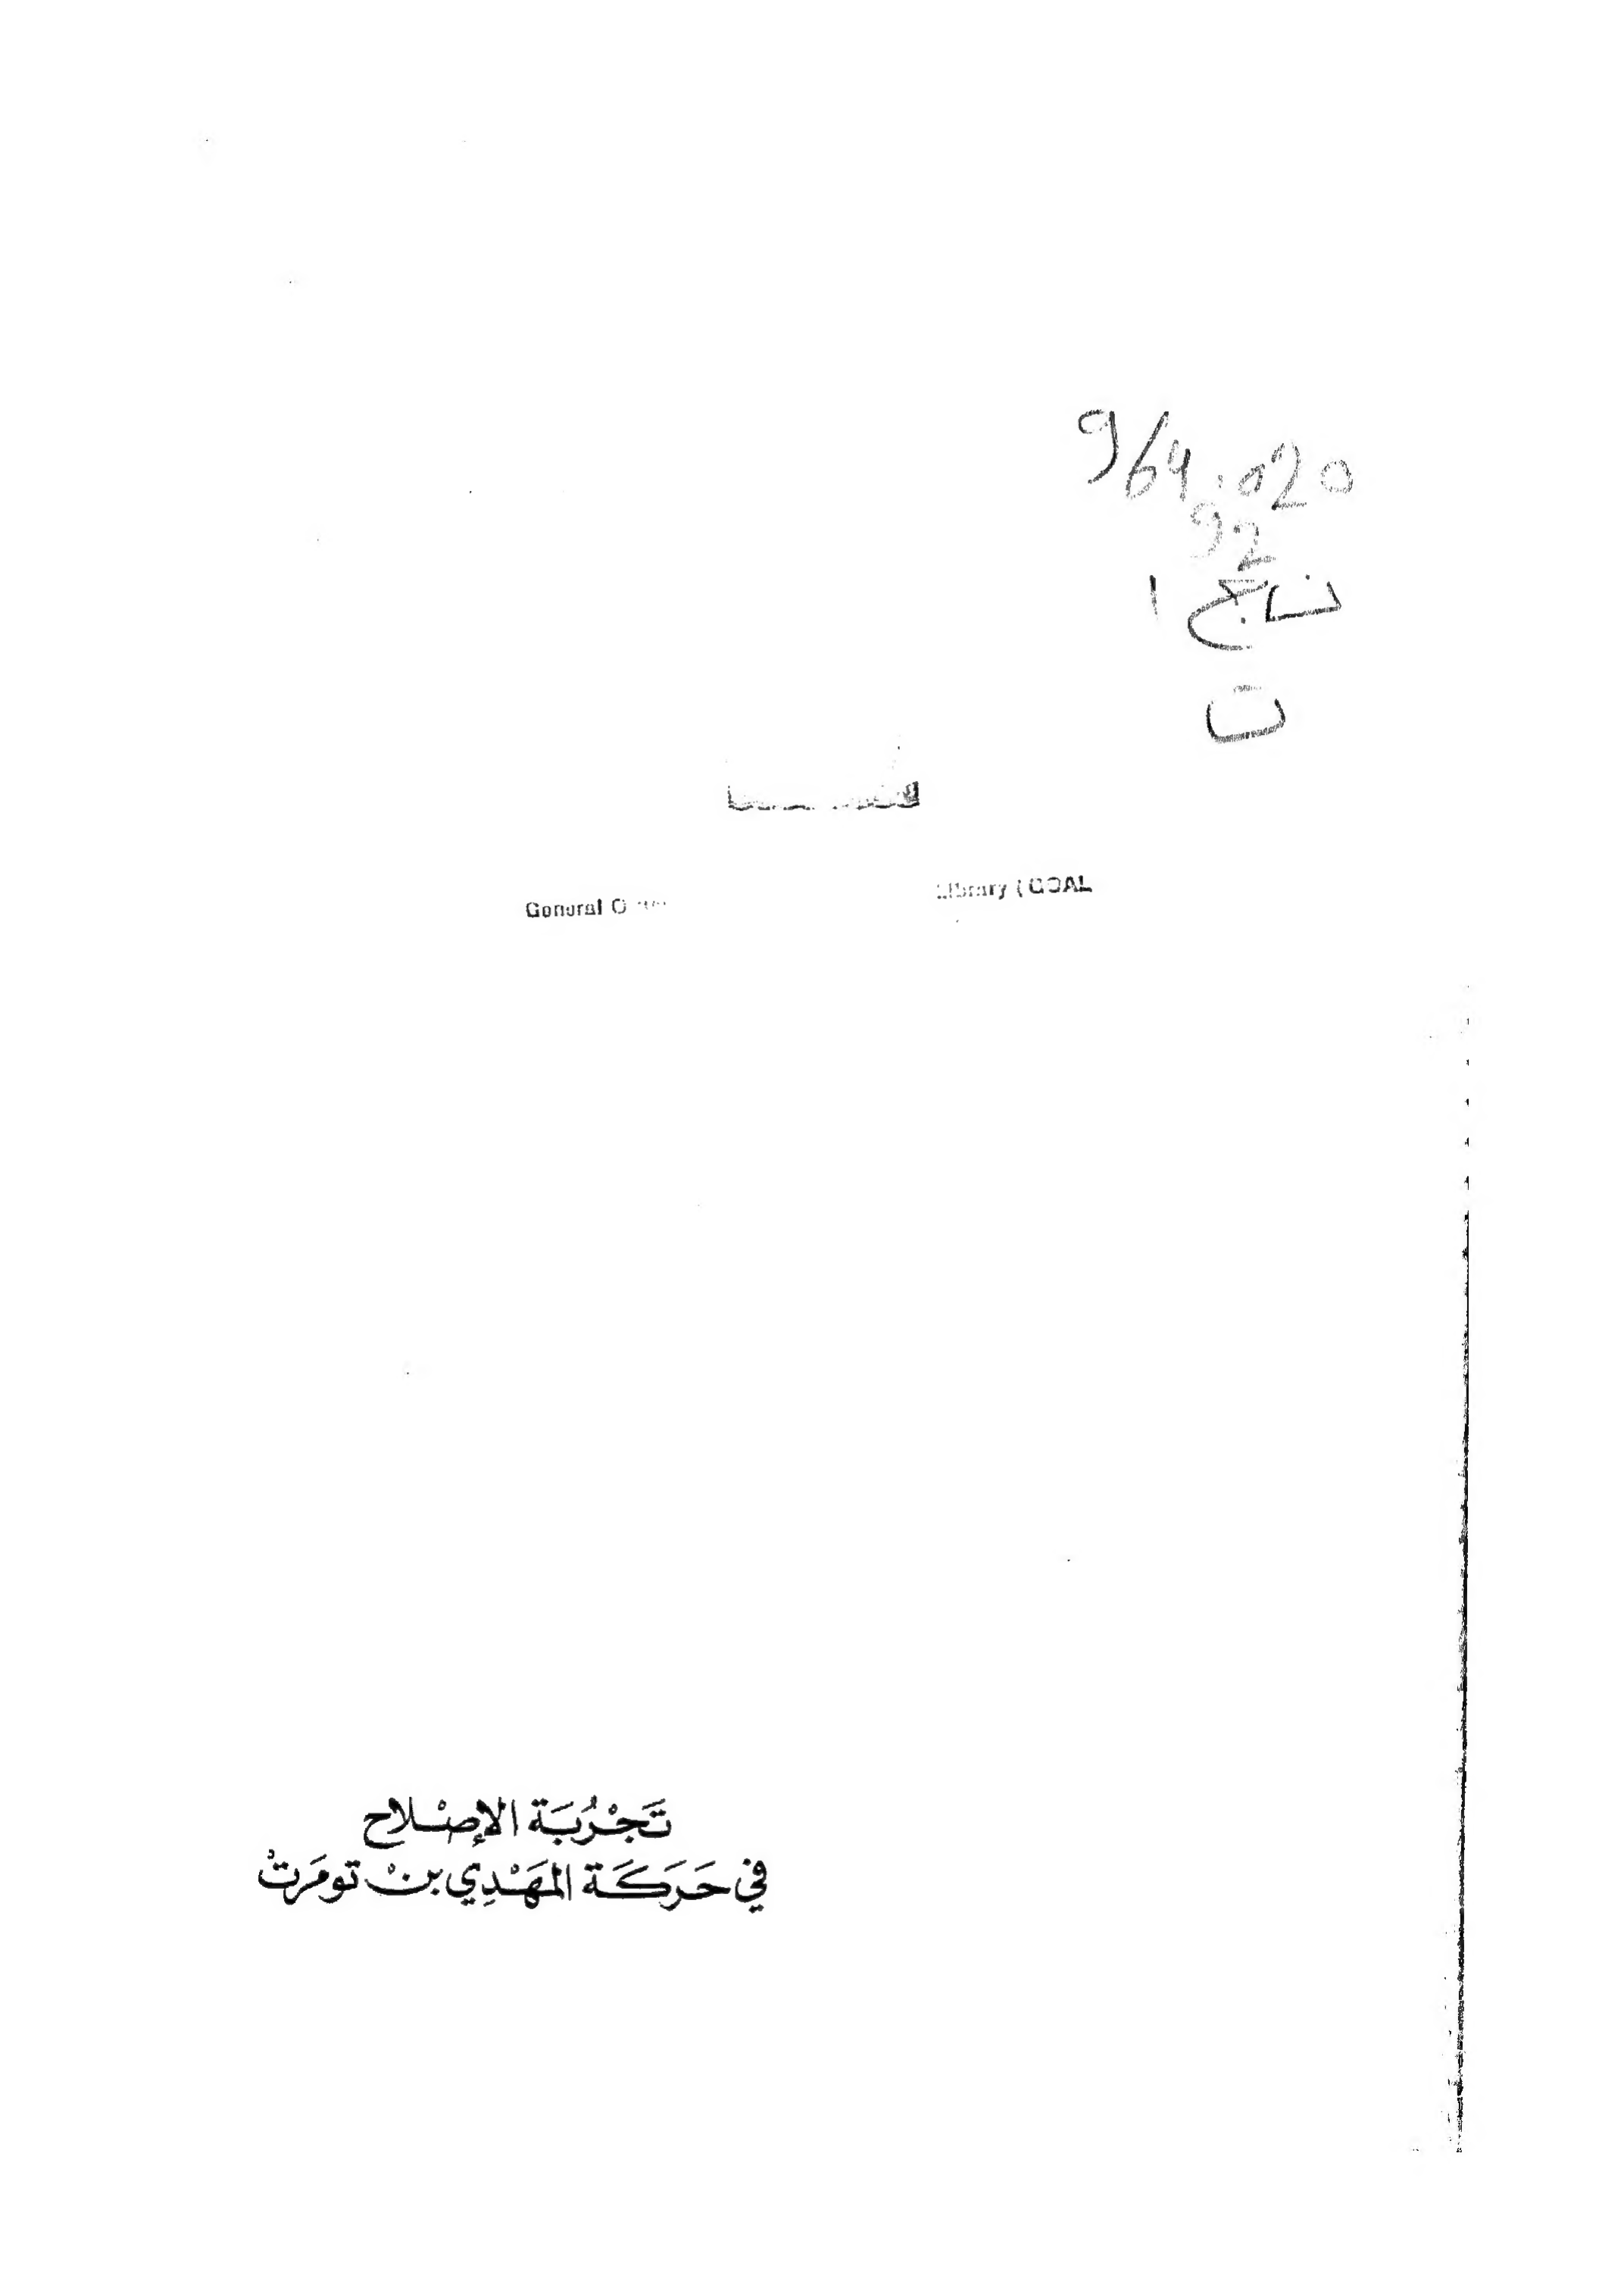 964.020
92
نج ا
ت
General O
Library ( GOAL
تَجْرُبَة الإصْلاح
في حَرَكَة المَهْدِي بنْ تومَرتْ